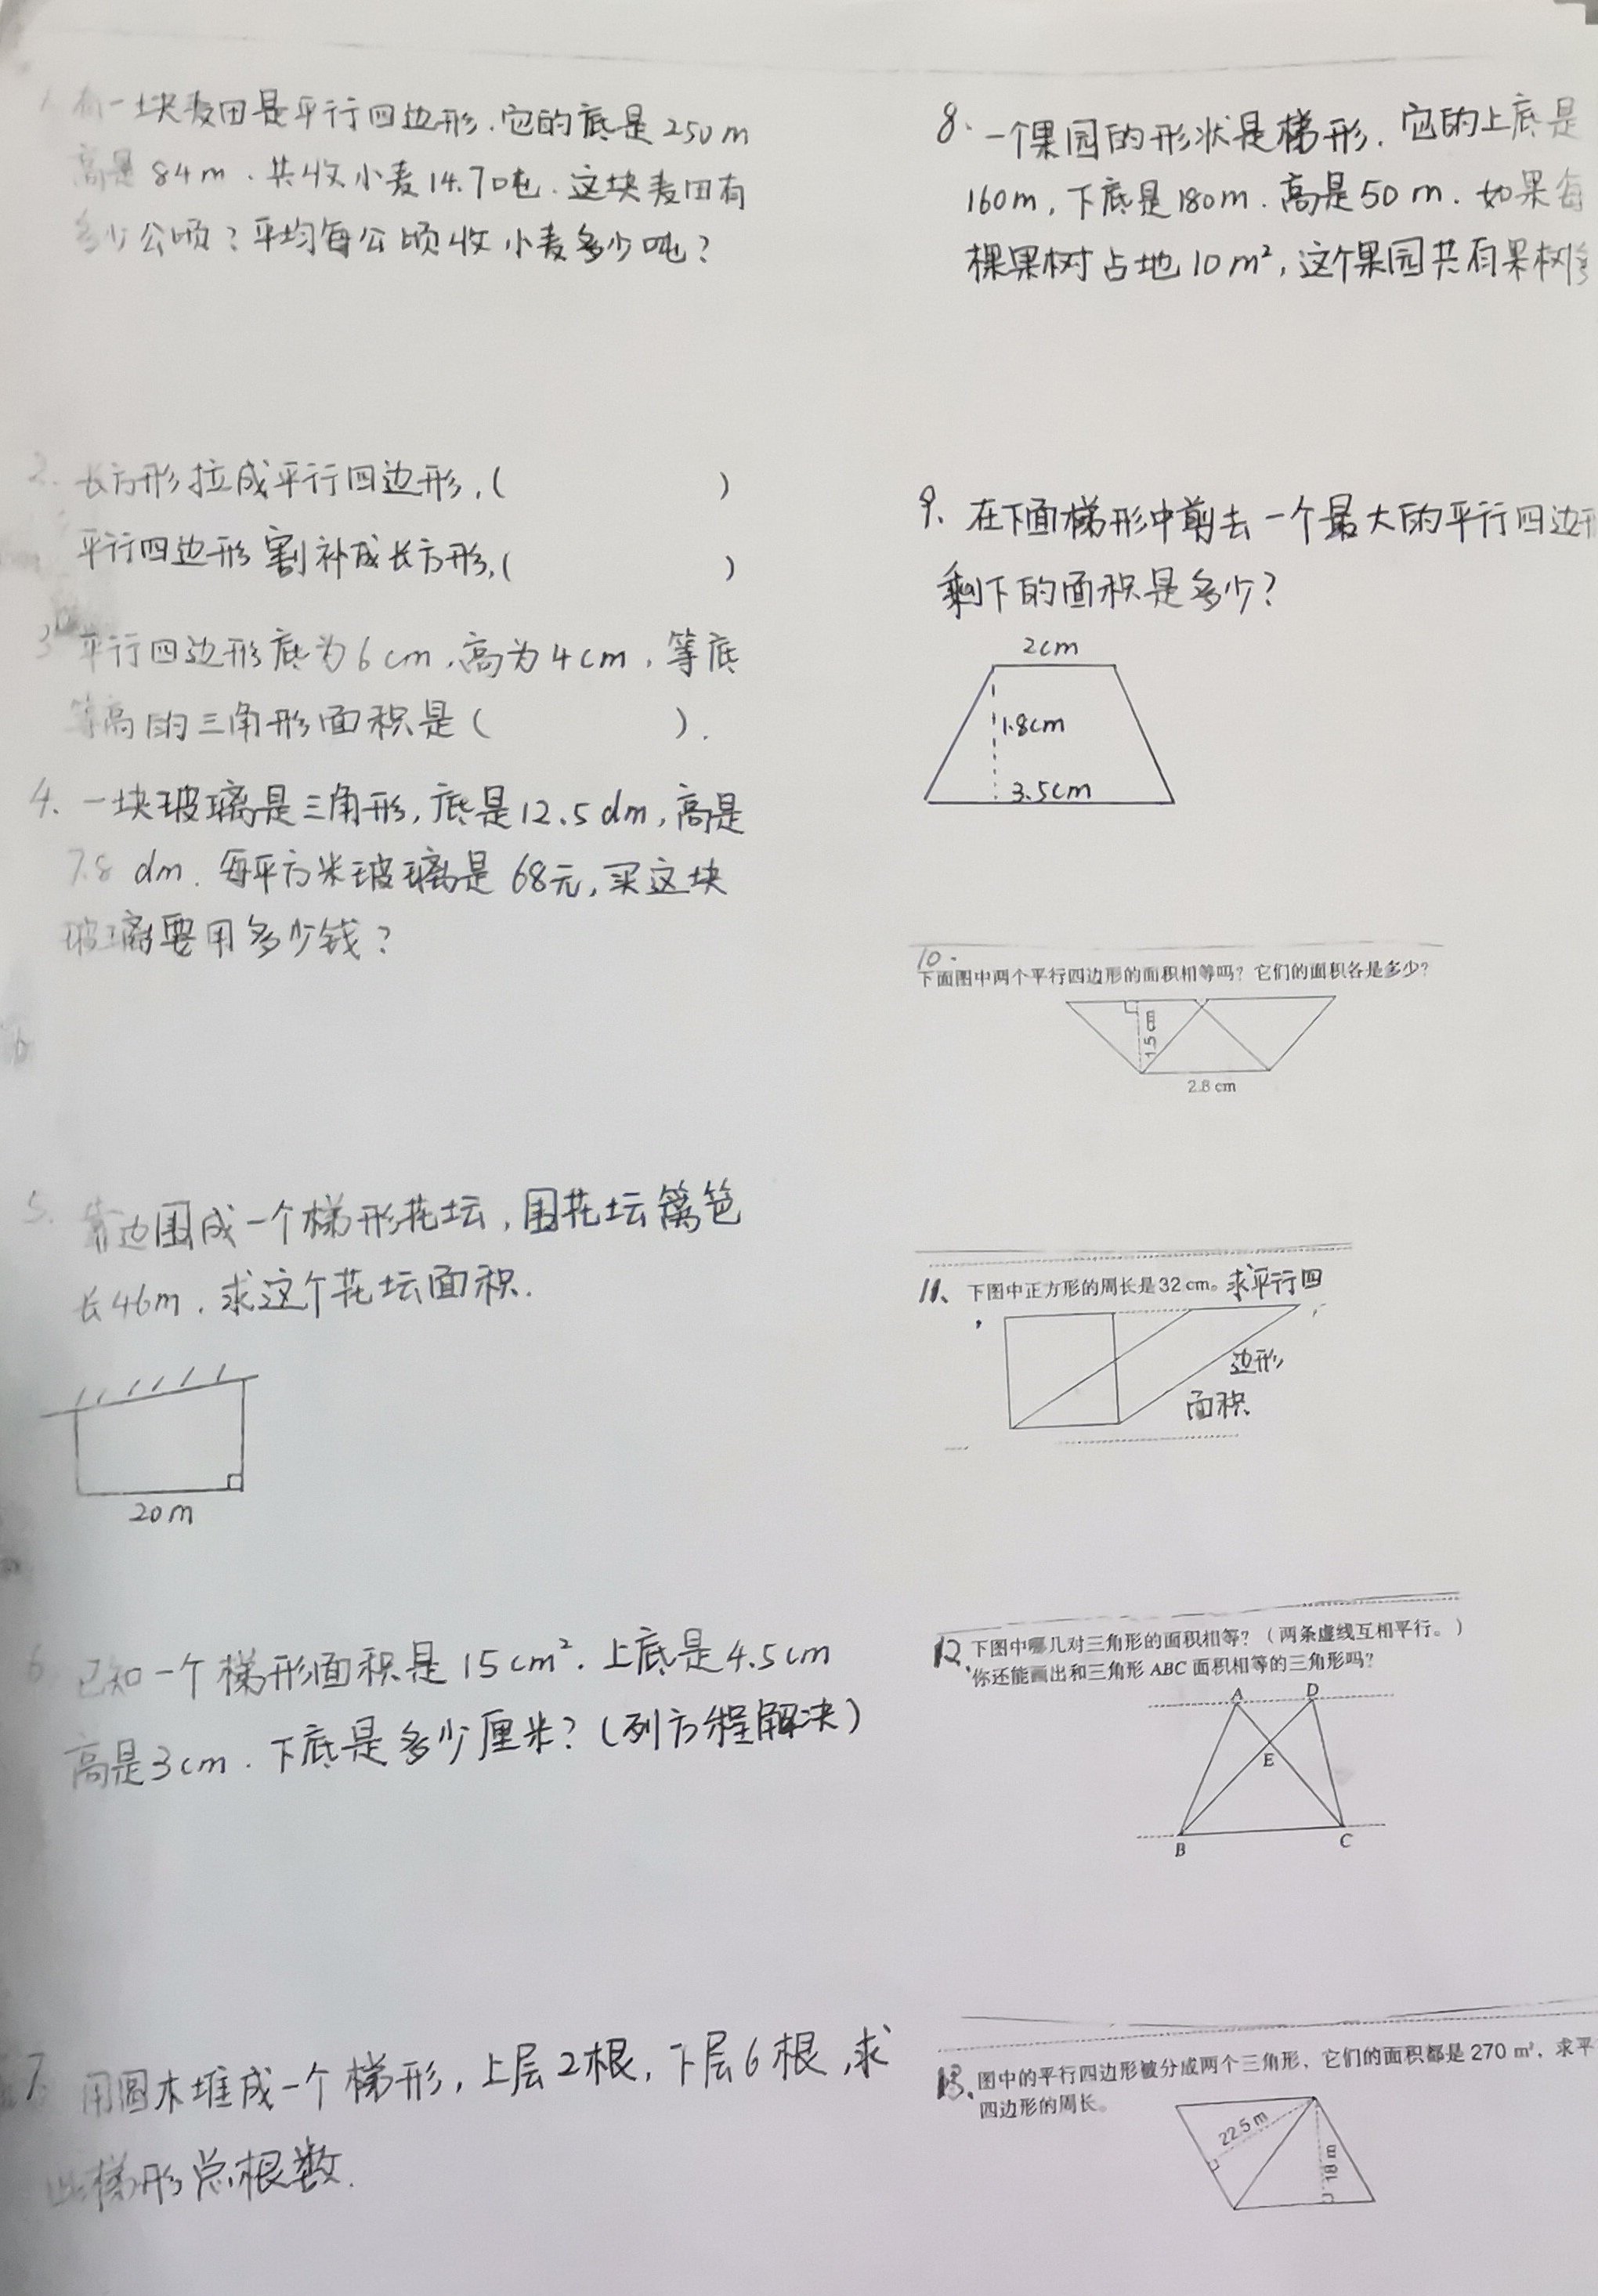 1. 有一块麦田是平行四边形.它的底是250m
高是84m.共收小麦14.7吨.这块麦田有
多少公顷?平均每公顷收小麦多少吨?
2. 长方形拉成平行四边形,( )
平行四边形割补成长方形,( )
3 平行四边形底为6cm,高为4cm,等底
等高的三角形面积是( ).
4、一块玻璃是三角形,底是12.5dm,高是
7.8 dm.每平方米玻璃是68元,买这块
玻璃要用多少钱?
5. 靠边围成一个梯形花坛,围花坛篱笆
长46m.求这个花坛面积.
20m
6 已知一个梯形面积是15cm².上底是4.5cm
高是3cm.下底是多少厘米?(列方程解决)
7 用圆木堆成一个梯形,上层2根,下层6根,求
此梯形总根数.
8、一个果园的形状是梯形.它的上底是
160m,下底是180m.高是50m.如果每
棵果树占地10m²,这个果园共有果树
9、在下面梯形中剪去一个最大的平行四边形
剩下的面积是多少?
2cm
1.8cm
3.5cm
10.
下面图中两个平行四边形的面积相等吗?它们的面积各是多少?
1.5 cm
2.8 cm
11、下图中正方形的周长是32 cm。求平行四
边形
面积
12、下图中哪几对三角形的面积相等?(两条虚线互相平行。)
你还能画出和三角形 ABC 面积相等的三角形吗?
A D
E
B C
13、图中的平行四边形被分成两个三角形,它们的面积都是270 m²,求平
四边形的周长。
22.5 m
18 m